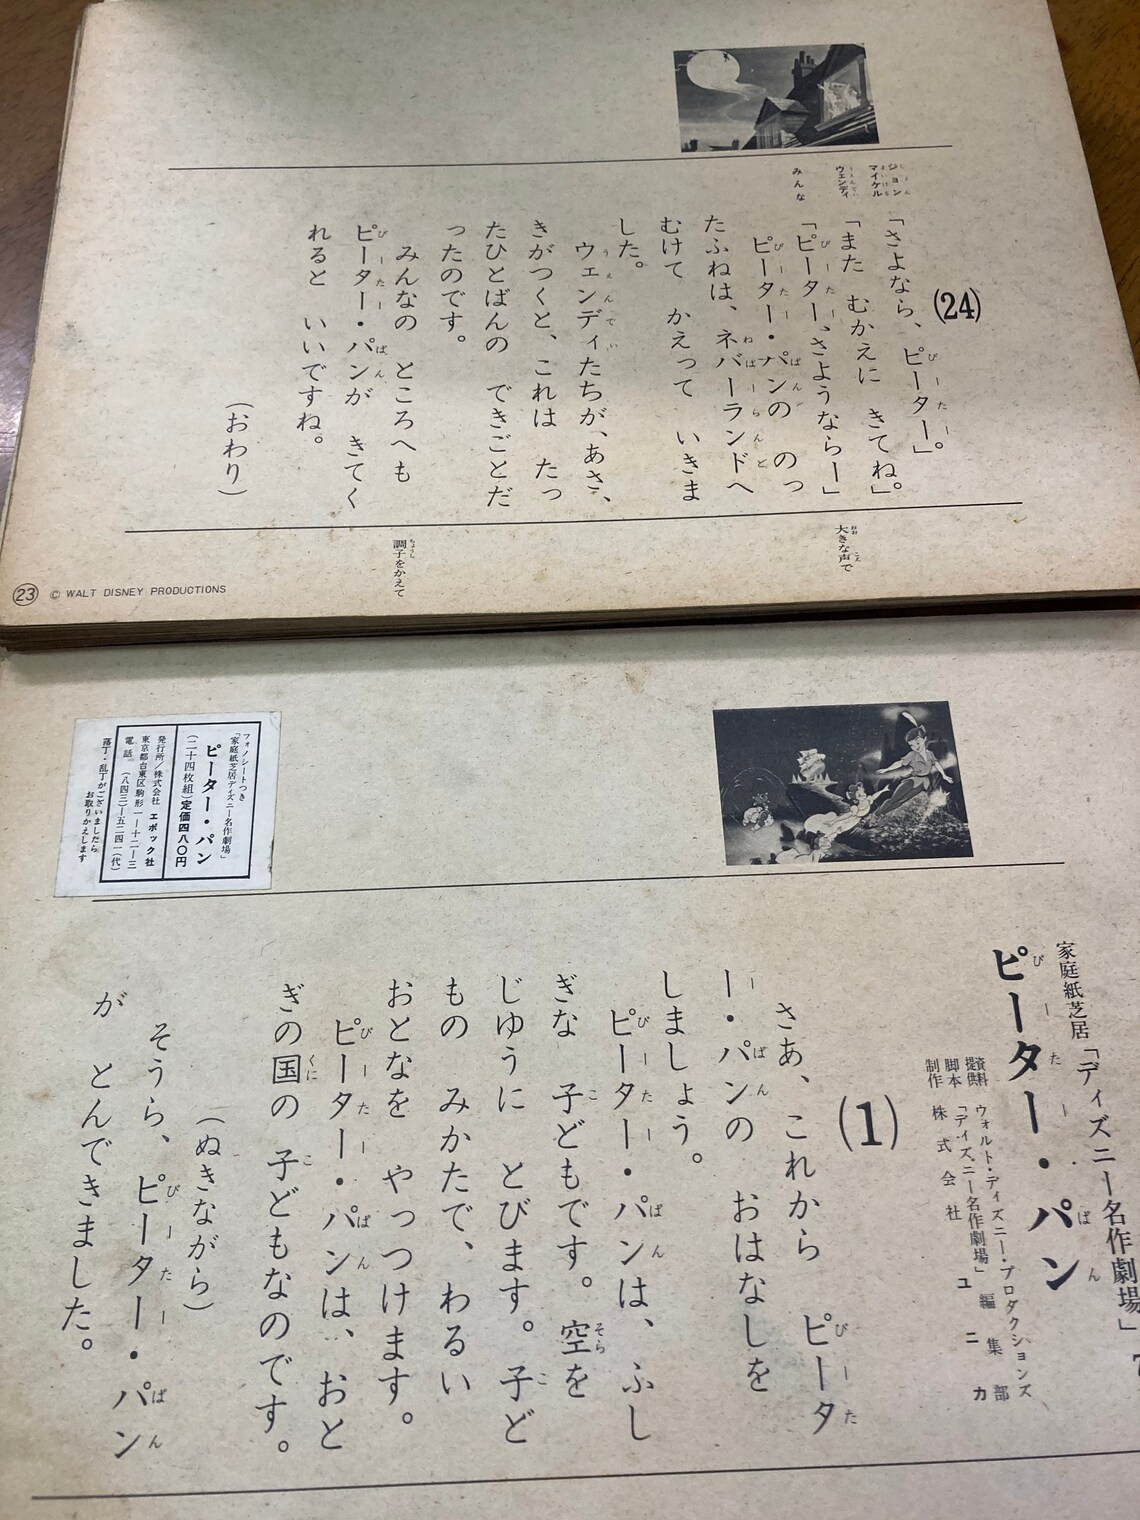 (24)
ジョン
マイケル
「さよなら、ピーター」。
ウェンディ
「また むかえに きてね。」
みんな
「ピーター、さようならー」
ピーター・パンの のっ
たふねは、ネバーランドへ
むけて かえって いきま
した。
ウェンディたちが、あさ、
きがつくと、これは たっ
たひとばんの できごとだ
ったのです。
みんなの ところへも
ピーター・パンが きてく
れると いいですね。
(おわり)
大きな声で
調子をかえて
23 © WALT DISNEY PRODUCTIONS
家庭紙芝居「ディズニー名作劇場」
ピーター・パン
資料提供 ウォルト・ディズニー・プロダクションズ
脚本 「ディズニー名作劇場」編集部
制作 株式会社 ユニカ
(1)
さあ、これから ピータ
ー・パンの おはなしを
しましょう。
ピーター・パンは、ふし
ぎな 子どもです。空を
じゆうに とびます。子ど
もの みかたで、わるい
おとなを やっつけます。
ピーター・パンは、おと
ぎの国の 子どもなのです。
(ぬきながら)
そうら、ピーター・パン
が とんできました。
フォノシートつき
「家庭紙芝居ディズニー名作劇場」
ピーター・パン
(二十四枚組)定価四八〇円
発行所/株式会社 エポック社
東京都台東区駒形一ー十二ー三
電話 (八四三)ー五二四一(代)
落丁・乱丁がございましたら
お取りかえします